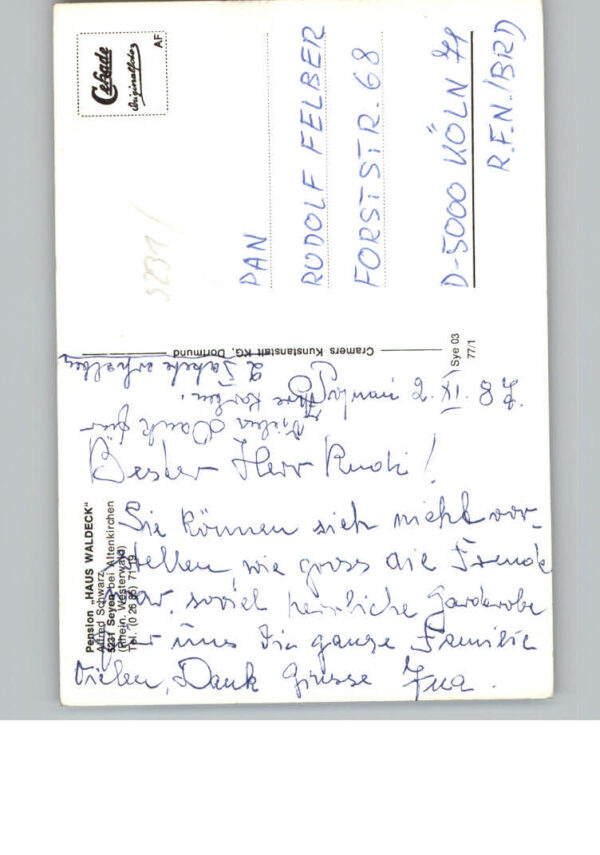 Cekade
Originalfoto
AF
5231/
PAN
RUDOLF FELBER
FORSTSTR. 68
D-5000 KÖLN 71
R.F.N./BRD
Cramers Kunstanstalt KG, Dortmund
Sye 03
77/1
2 Pakete erhalten
28. IX. 2
Vielen Dank für
Ihre Karten.
Bester Herr Rudi!
Sie können sich nicht vor-
stellen, wie gross die Freude
war, soviel herrliche Garderobe
für uns die ganze Familie
Vielen Dank Grüsse
Pension „HAUS WALDECK"
Alfred Schwarz
5231 Seyen bei Altenkirchen
(Rhein. Westerwald)
Tel. (0 26 85) 71 19